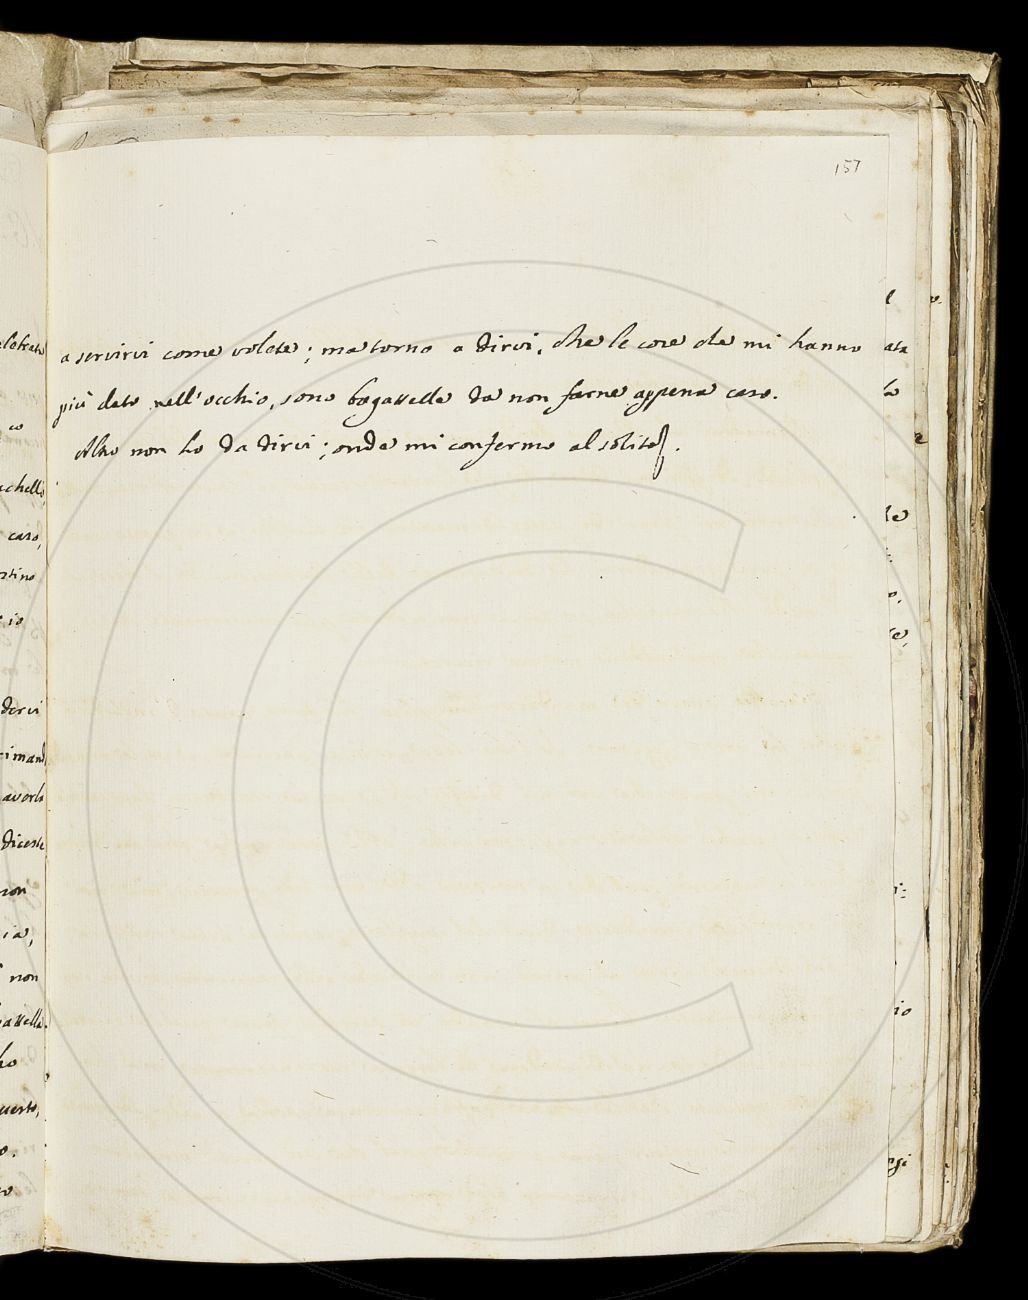 157
a servirvi come volete; ma torno a dirvi, che le cose che mi hanno
più dato nell'occhio, sono bagattelle da non farne appena caso.
Altro non ho da dirvi; onde mi confermo al solito.
caso,
io
dervi
averlo
diceste
non
ia,
non
ho